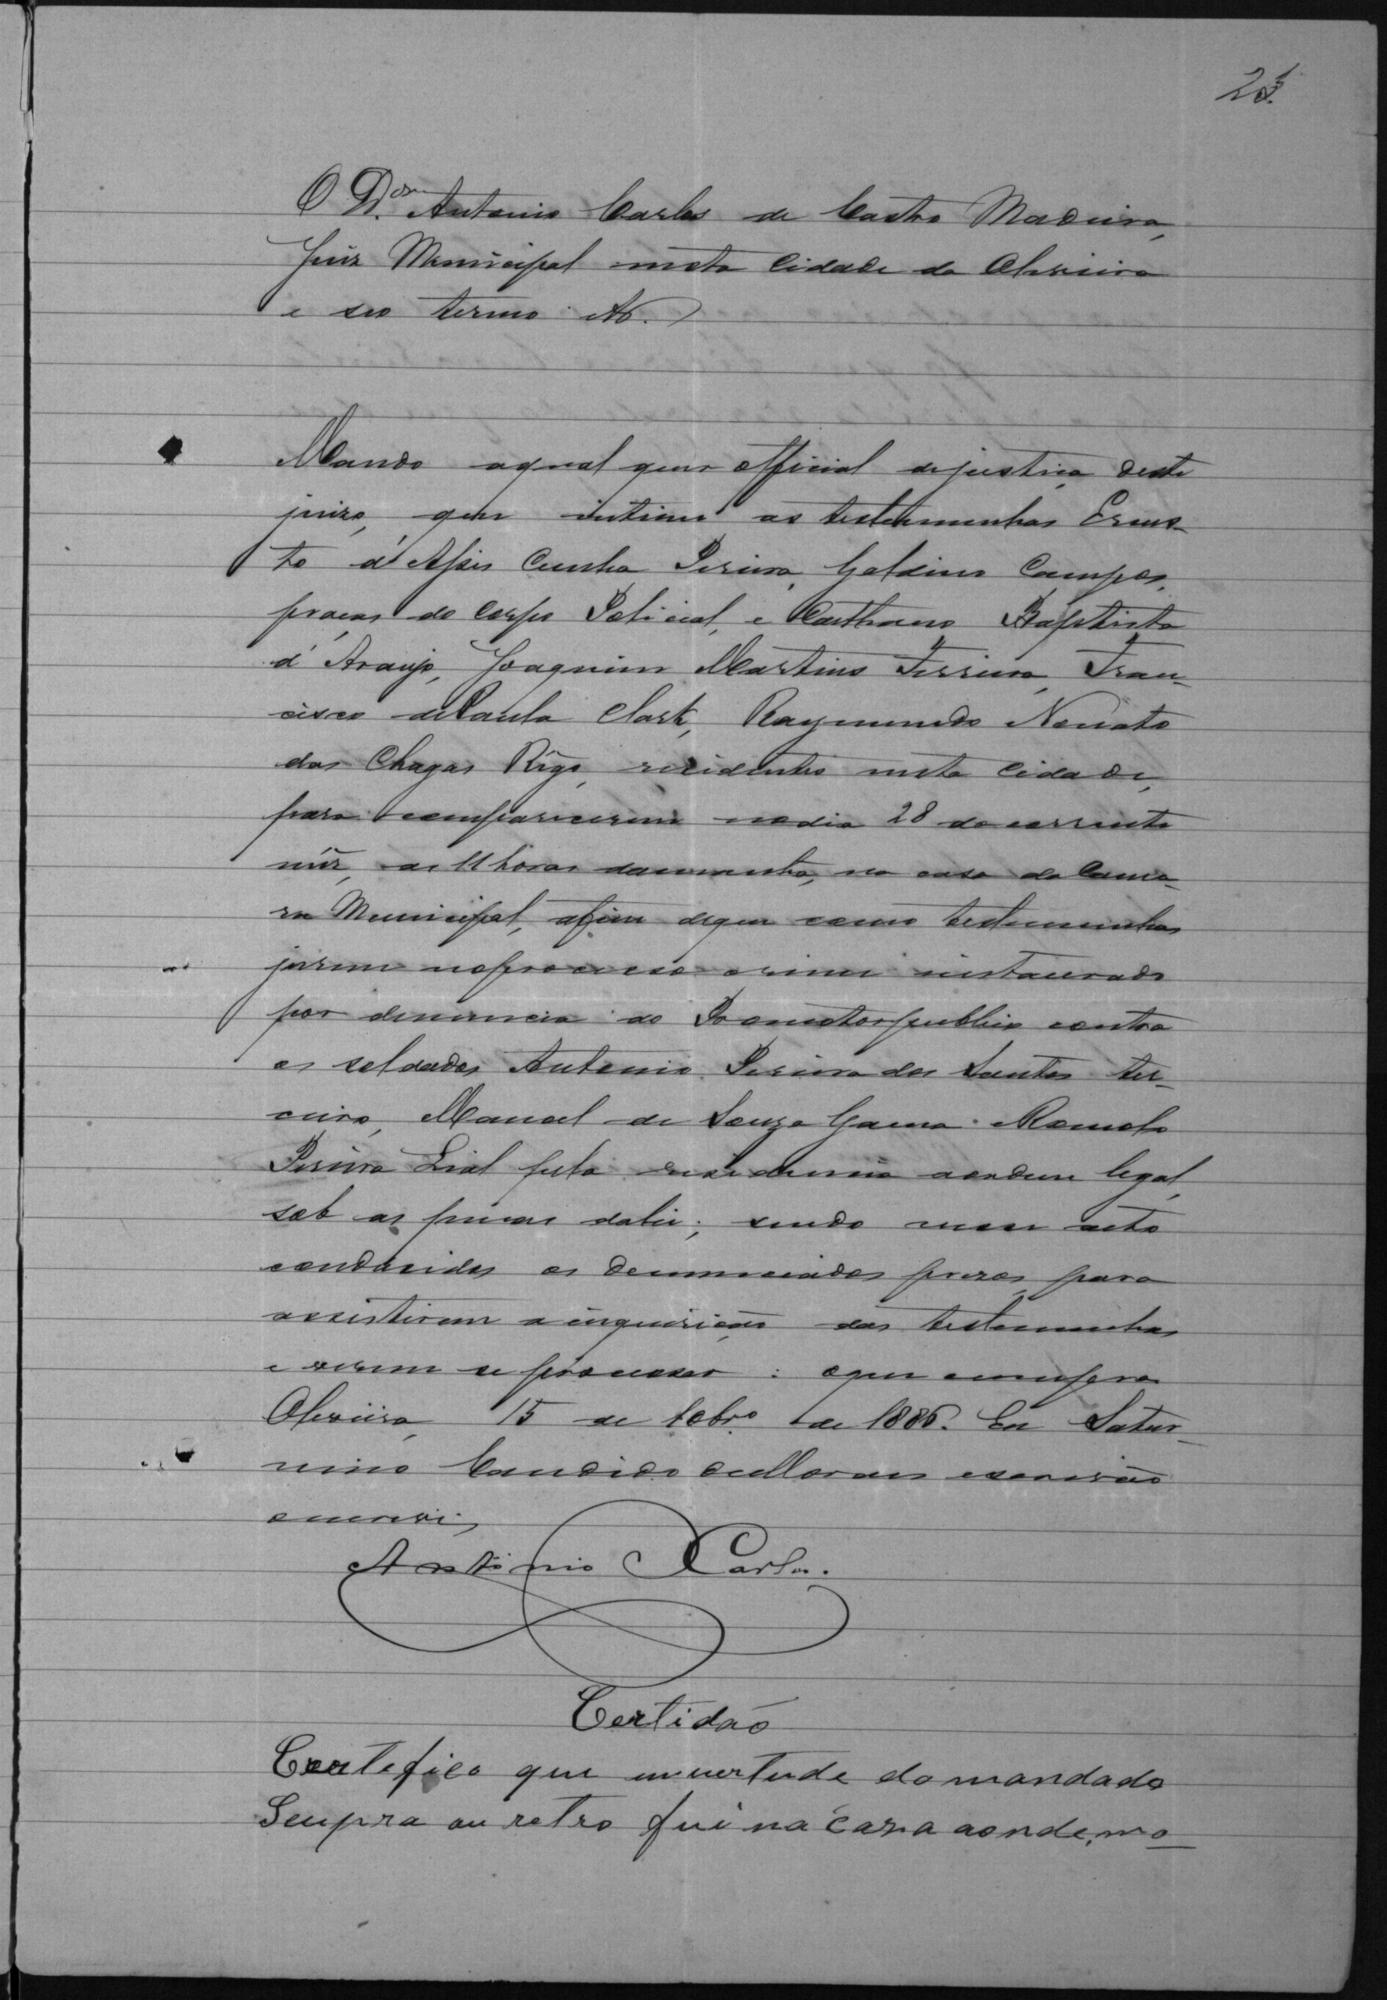 O D.or Antonio Carlos de Castro Madeira,
Juiz Municipal nesta Cidade da Oliveira
e seo termo &.
Mando aqual quer official dejustiça deste
juizo, que intime as testemunhas Ernes-
to d'Assis Cunha Pereira, Galdino Campos,
praças do Corpo Policial, e Baptista
d'Araujo, Joaquim Martins Ferreira, Fran-
cisco dePaula Clark, Raymundo Nonato
das Chagas Rigo, rezidentes nesta Cidade,
para comparecerem nodia 28 do corrente
mêz, as 11 horas damanhã, na casa da Cama-
ra Municipal, afim deque como testemunhas
jurem noprocesso crime instaurado
por denuncia do Promotorpublico contra
os soldados Antonio Pereira dos Santos ter-
ceiro, Manoel de Souza Gama Romolo
Pereira Lial legal,
sob as penas dalei; sendo nesse acto
conduzidos os denunciados prezos, para
assistirem ainquirição das testemunhas
e verem se processar: oque cumpra
Oliveira, 15 de de 1886. Eu Satur-
nino Candido deMoraes escrivão
oescrevi,
Antonio Carlos.
Certidão
Certefico que emvertude domandado
Supra ou retro fui na casa aondemo